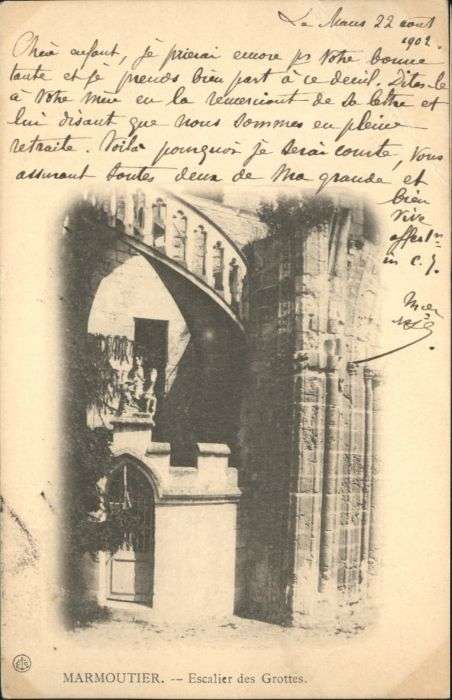 Le Mans 22 aout
1902.
Chère enfant, je prierai encore pr Votre bonne
tante et je prends bien part à ce deuil. Dites-le
à Votre Mère en la remerciant de sa lettre et
lui disant que nous sommes en pleine
retraite. Voilà pourquoi je serai courte, Vous
assurant toutes deux de Ma grande et
bien
vive
affectn
in C. J.
MARMOUTIER. -- Escalier des Grottes.